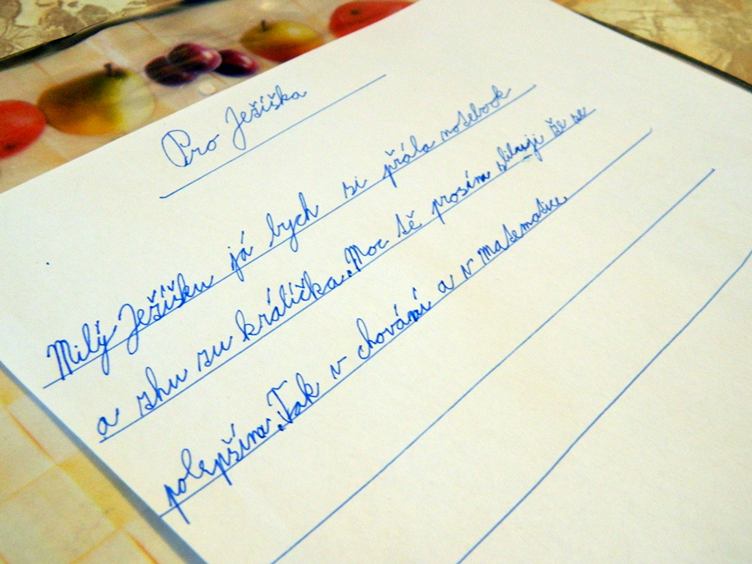 Pro Ježíška
Milý Ježíšku já bych si přála notebook
a zhu zu králíčka. Moc tě prosím slibuji že se
polepšíma. Tak v chování a v matematice